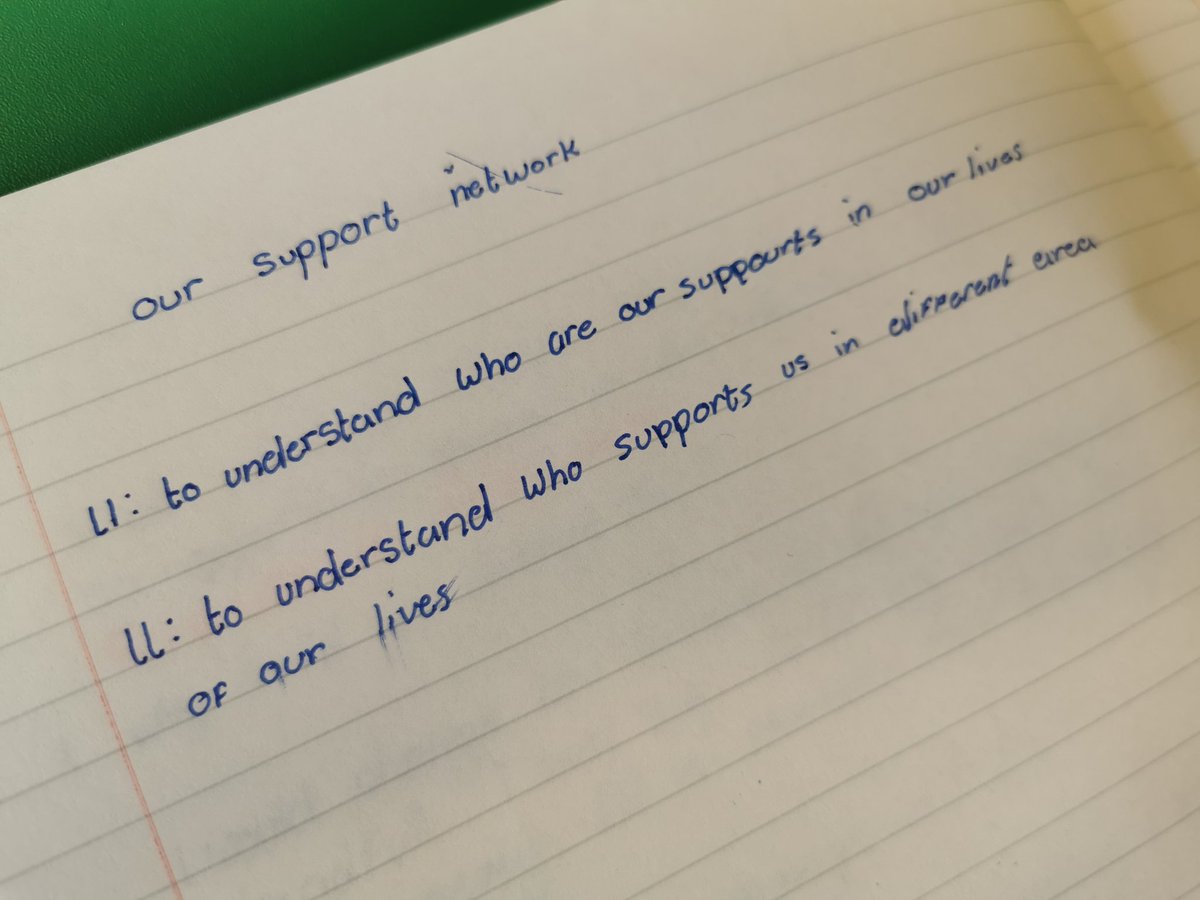 our support network
LI: to understand who are our suppourts in our lives
LL: to understand who supports us in different area
of our lives